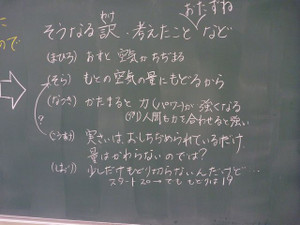 おたずね
そうなる訳・考えたこと など
わけ
(まひろ) おすと 空気が ちぢまる
(そら) もとの空気の量にもどるから
(なつき) かたまると 力(パワー)が強くなる
(例) 人間も力を合わせると強い
?
(こうすけ) 実さいは、おしちぢめられているだけ
量はかわらないのでは?
少しだけもどり切らないんだけど…
スタート20→でも もどりは19
ので